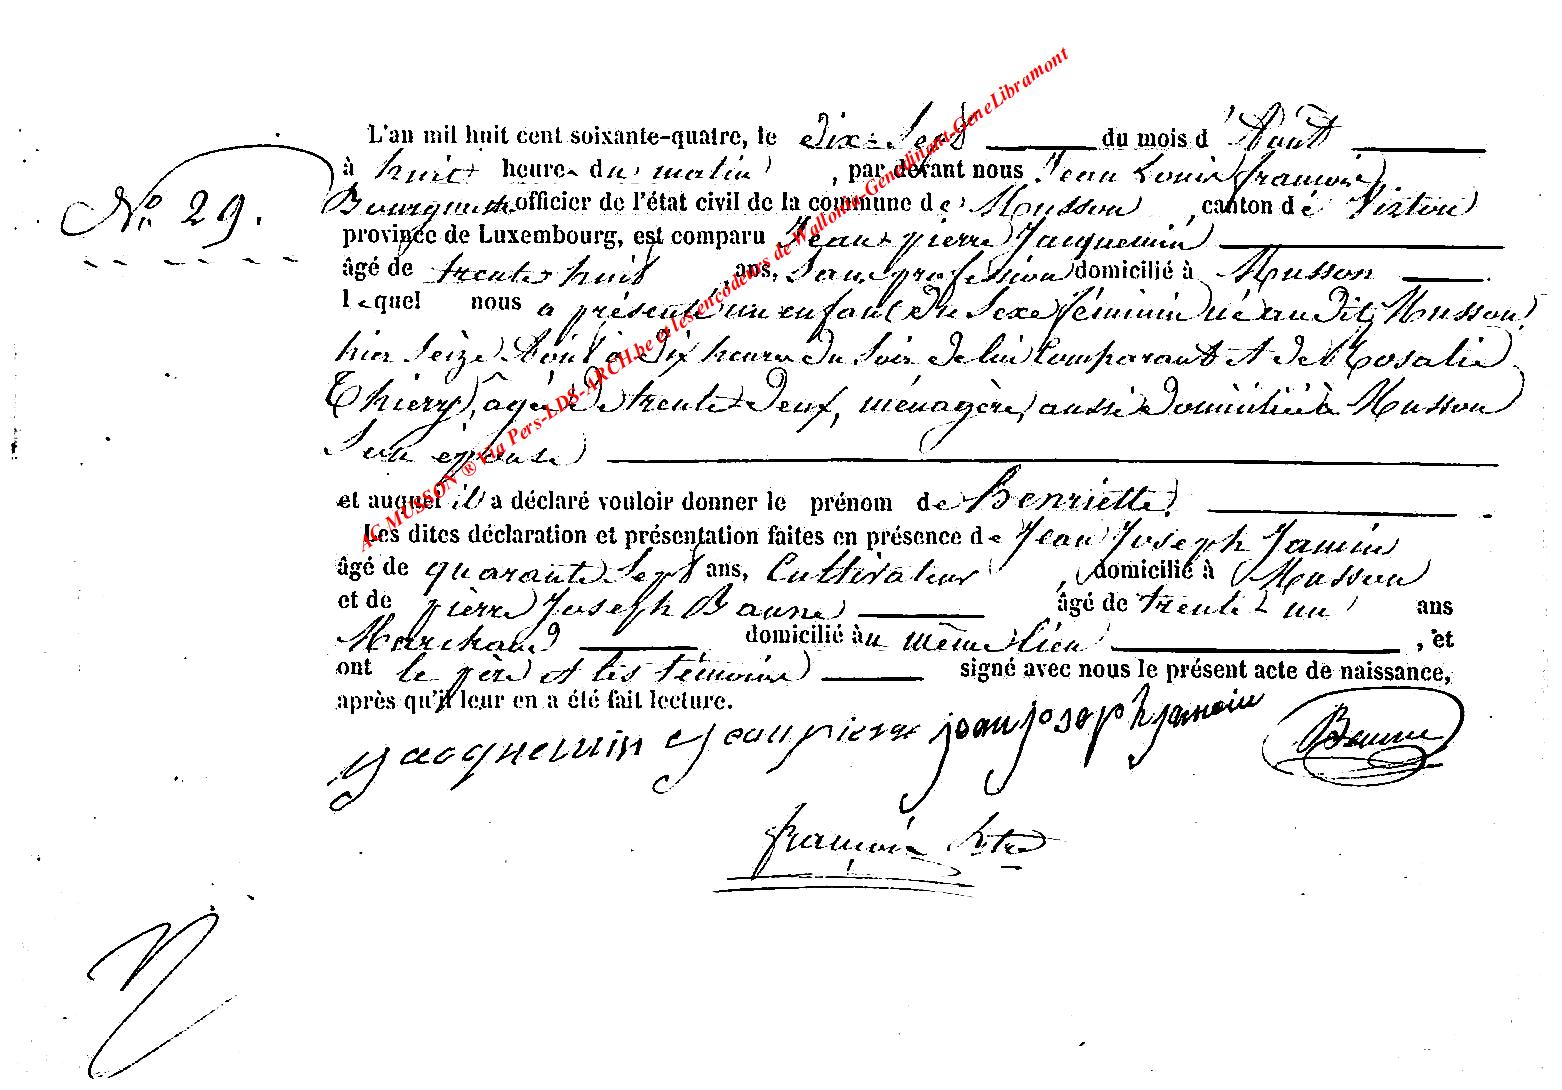 L'an mil huit cent soixante-quatre, le dix-sept du mois d'Août
à huit heures du matin, par devant nous Jean Louis françois
Bourguignon officier de l'état civil de la commune de Musson, canton de Virton
N° 29.
province de Luxembourg, est comparu Jean-pierre Jacquemin
âgé de trente huit ans, sans profession domicilié à Musson
lequel nous a présenté un enfant du sexe féminin né audit Musson
hier seize Août à dix heures du soir de lui comparant et de Rosalie
Thiery, âgée de trente-deux, ménagère, aussi domiciliée à Musson
son épouse
et auquel il a déclaré vouloir donner le prénom de Henriette.
Les dites déclaration et présentation faites en présence de Jean Joseph Jamin
âgé de quarante sept ans, Cultivateur, domicilié à Musson
et de pierre Joseph Baune âgé de trente-un ans
Marchand domicilié au même lieu, et
ont le père et les témoins signé avec nous le présent acte de naissance,
après qu'il leur en a été fait lecture.
jacquemin jeanpierre jean joseph jamin Baune
françois
AC MUSSON ® Via Pers-LDS-ARCH.be et les encodeurs de Wallonia-Genealinant-GeneLibramont